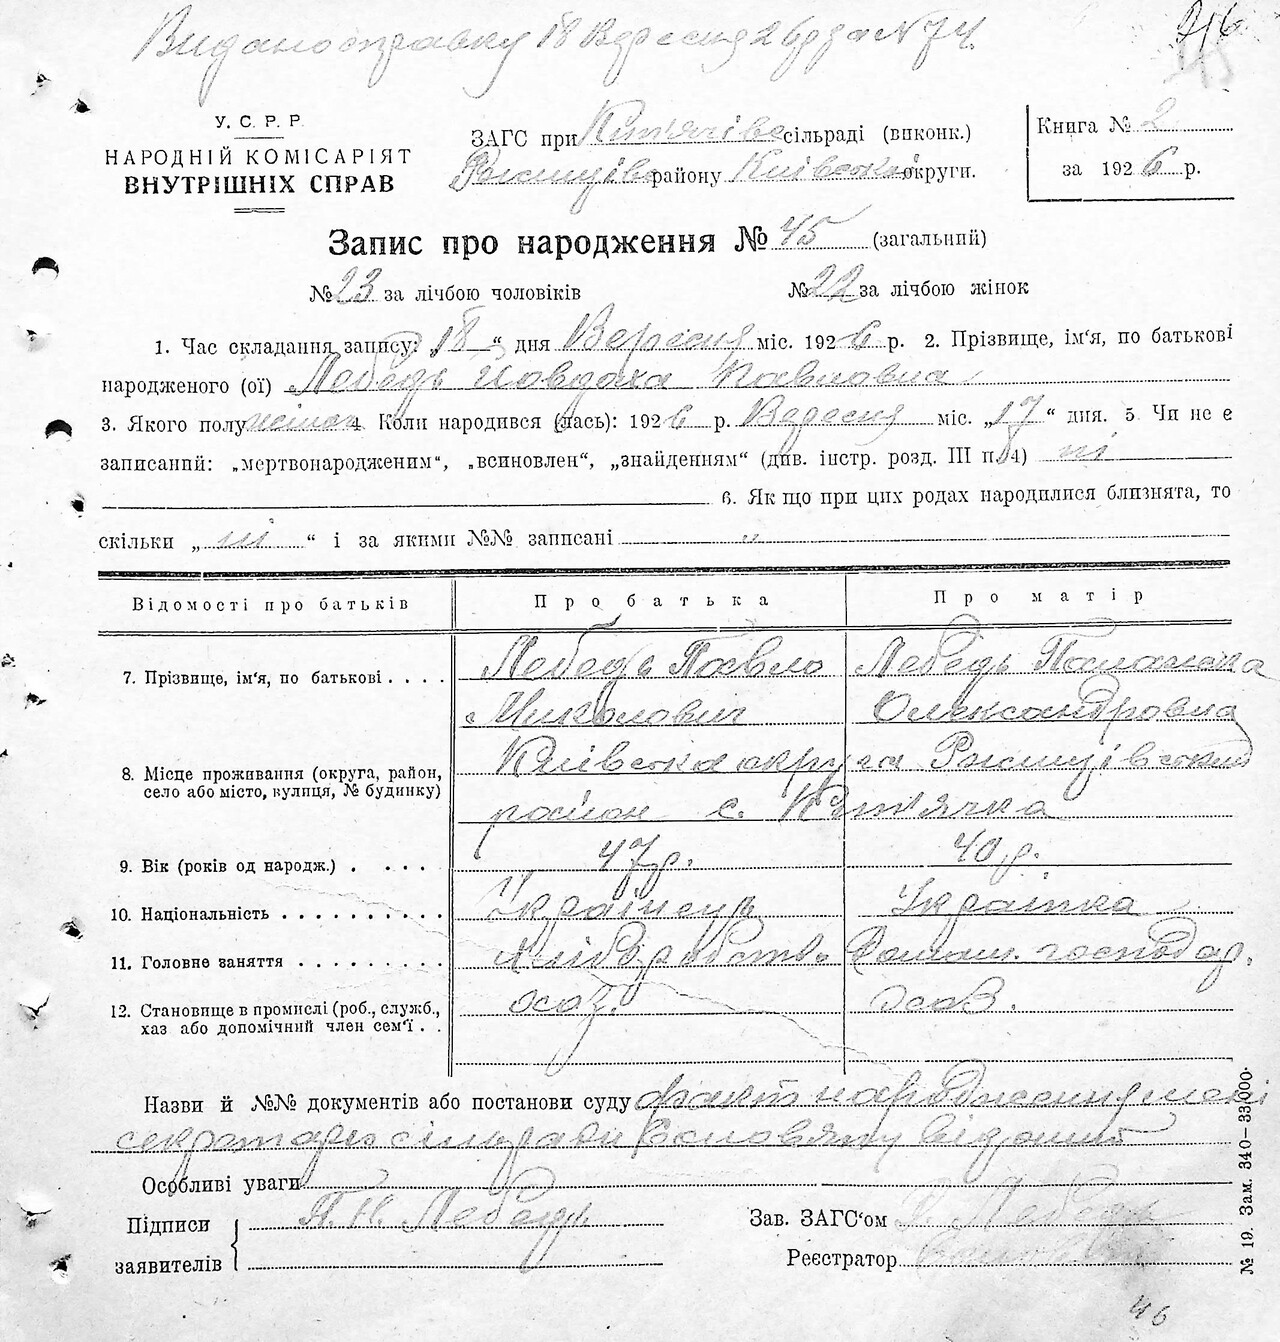 Видано справку 18 Вересня 26 р за №74.
У. С. Р. Р.
НАРОДНІЙ КОМІСАРІЯТ
ВНУТРІШНІХ СПРАВ
ЗАГС при сільраді (виконк.)
району Київської округи.
Книга № 2
за 1926 р.
Запис про народження № 45 (загальний)
№ 23 за лічбою чоловіків № 22 за лічбою жінок
1. Час складання запису: „18“ дня Вересня міс. 1926 р. 2. Прізвище, ім‘я, по батькові
народженого (ої) Лебедь Йовдоха Павловна
3. Якого полу жіноч 4 Коли народився (лась): 1926 р. Вересня міс. „17“ дня. 5 Чи не є
записаний: „мертвонародженим“, „всиновлен“, „знайденням“ (див. інстр. розд. III п. 4) ні
6. Як що при цих родах народилися близнята, то
скільки „ ні “ і за якими №№ записані "
Відомості про батьків Про батька Про матір
7. Прізвище, ім‘я, по батькові . . . . Лебедь Павло Лебедь Палажка
Николович Олександровна
8. Місце проживання (округа, район, Київська округа Ржищівський
село або місто, вулиця, № будинку) район с.
9. Вік (років од народж.) . . . . . 47 р. 40 р.
10. Національність . . . . . . . . . . Українець Українка
11. Головне заняття . . . . . . . . . Хліборобство Домаш. господар.
12. Становище в промислі (роб., служб., хаз. хаз.
хаз або допомічний член сем‘ї . .
Назви й №№ документів або постанови суду факт народження мені
секретарю сільради відомий
Особливі уваги
Підписи П. Н. Лебедь Зав. ЗАГС‘ом Лебедь
заявителів Реєстратор
№ 19. Зам. 340—33.000.
46